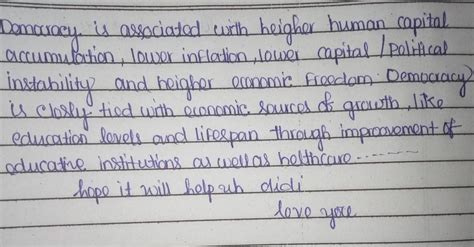 Democracy is associated with heigher human capital
accumulation, lower inflation, lower capital / political
instability and heigher economic freedom. Democracy
is closly tied with economic sources of growth, like
education levels and lifespan through improvement of
educative institutions as well as helthcare.........
hope it will help uh didi
love you